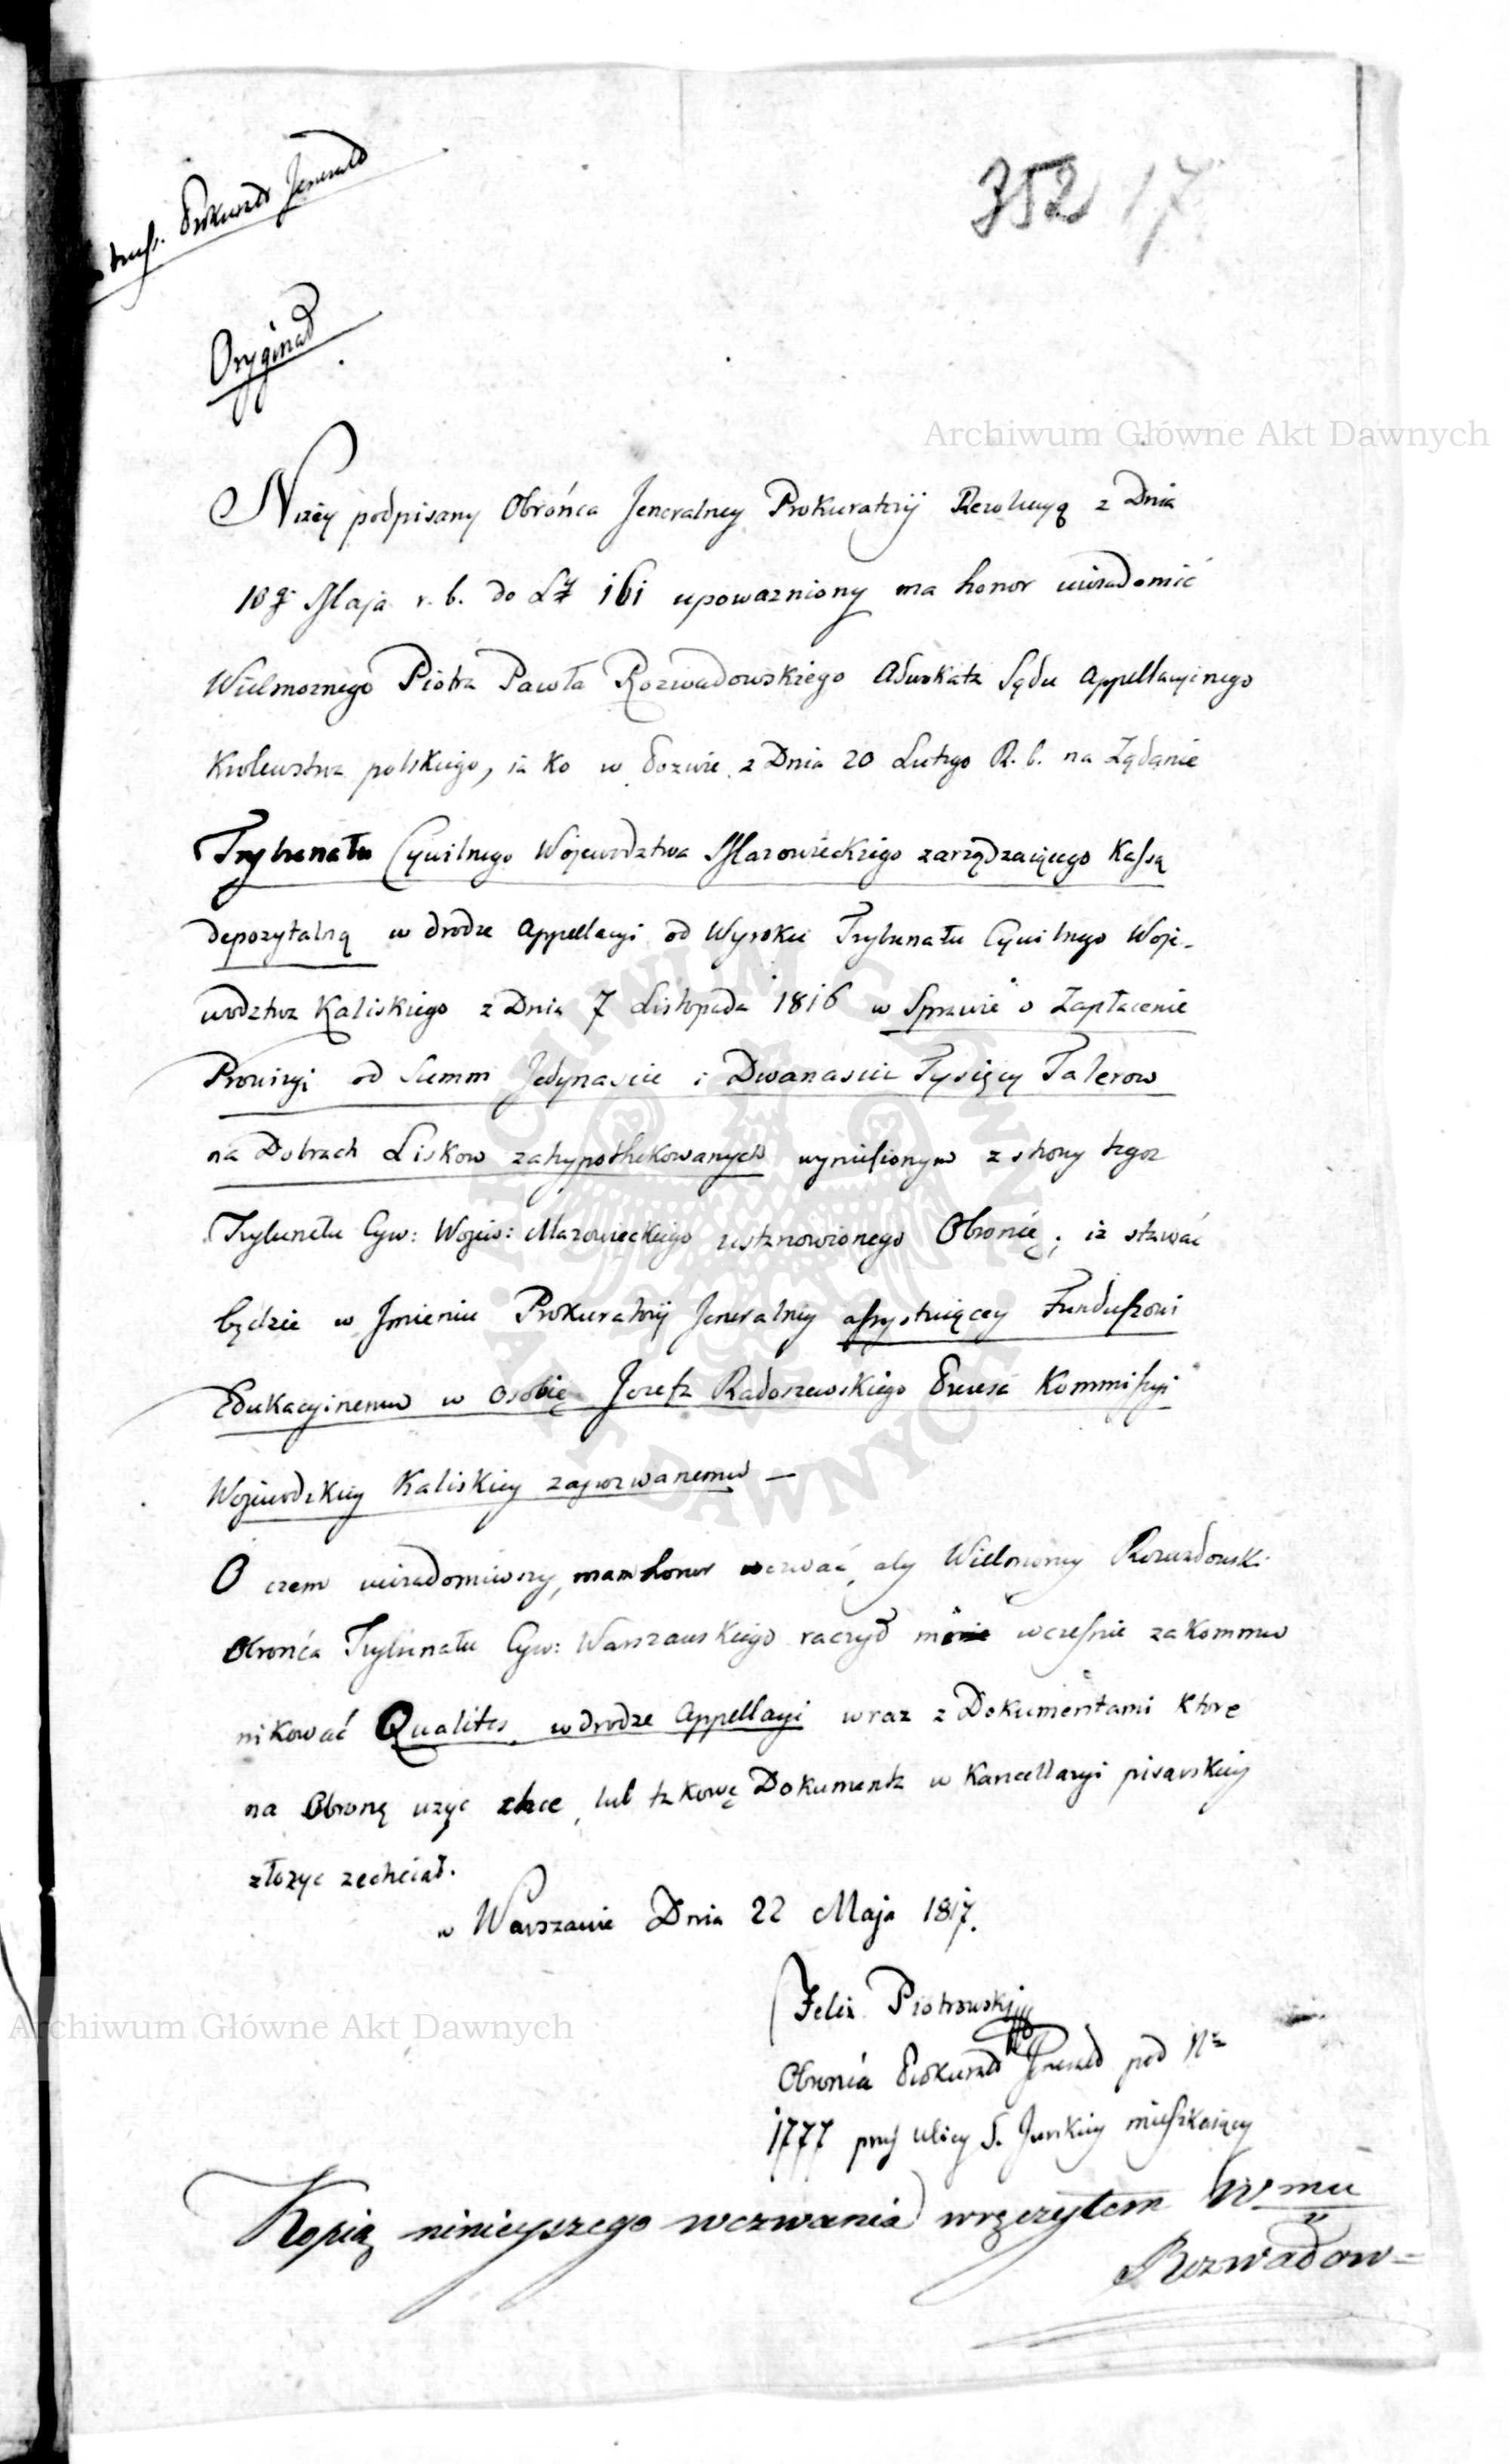 Prokurat Jenerald
352 17
Oryginał
Archiwum Główne Akt Dawnych
Niżey podpisany Obrońca Jeneralney Prokuratoryi Rezolucyą z Dnia
10go Maja r. b. do 161 upowazniony ma honor uwiadomić
Wielmoznego Piotra Pawła Rozwadowskiego Adwokata Sądu Appellacyinego
Krolewstwa polskiego, iako w Pozwie z Dnia 20 Lutego R. b. na Ządanie
Trybunału Cywilnego Wojewodztwa Mazowieckiego zarządzaiącego Kassą
depozytalną w drodze Appellacyi od Wyroku Trybunału Cywilnego Woje-
wodztwa Kaliskiego z Dnia 7 Listopada 1816 w Sprawie o Zapłacenie
Prowizyi od Summ Jedynascie i Dwanascie Tysięcy Talerow
na Dobrach Liskow zahypothekowanych wyniesionym z strony tegoz
Trybunału Cyw: Wojew: Mazowieckiego ustanowionego Obrońcę, iż stawać
będzie w Jmieniu Prokuratoryi Jeneralney assystuiącey Funduszowi
Edukacyinemu w osobie Jozefa Radoszewskiego Prezesa Kommissyi
Wojewodzkiey Kaliskiey zapozwanemu —
O czem uwiadomiwszy, mam honor wezwać, aby Wielmozny Rozwadowski
Obrońca Trybunału Cyw: Warszawskiego raczył mnie wczesnie zakommu
nikować Qualites w drodze Appellacyi wraz z Dokumentami ktore
na Obronę uzyc chce, lub takowe Dokumenta w Kancellaryi pisarskiey
złozyc zechciał.
w Warszawie Dnia 22 Maja 1817.
Felix Piotrowski
Archiwum Główne Akt Dawnych
Obrońca Prokurat Jenerald pod No
1777 przy ulicy S. Jurskiey mieszkaiący
Kopią ninieyszego wezwania wręczyłem Wmu
Rozwadow=